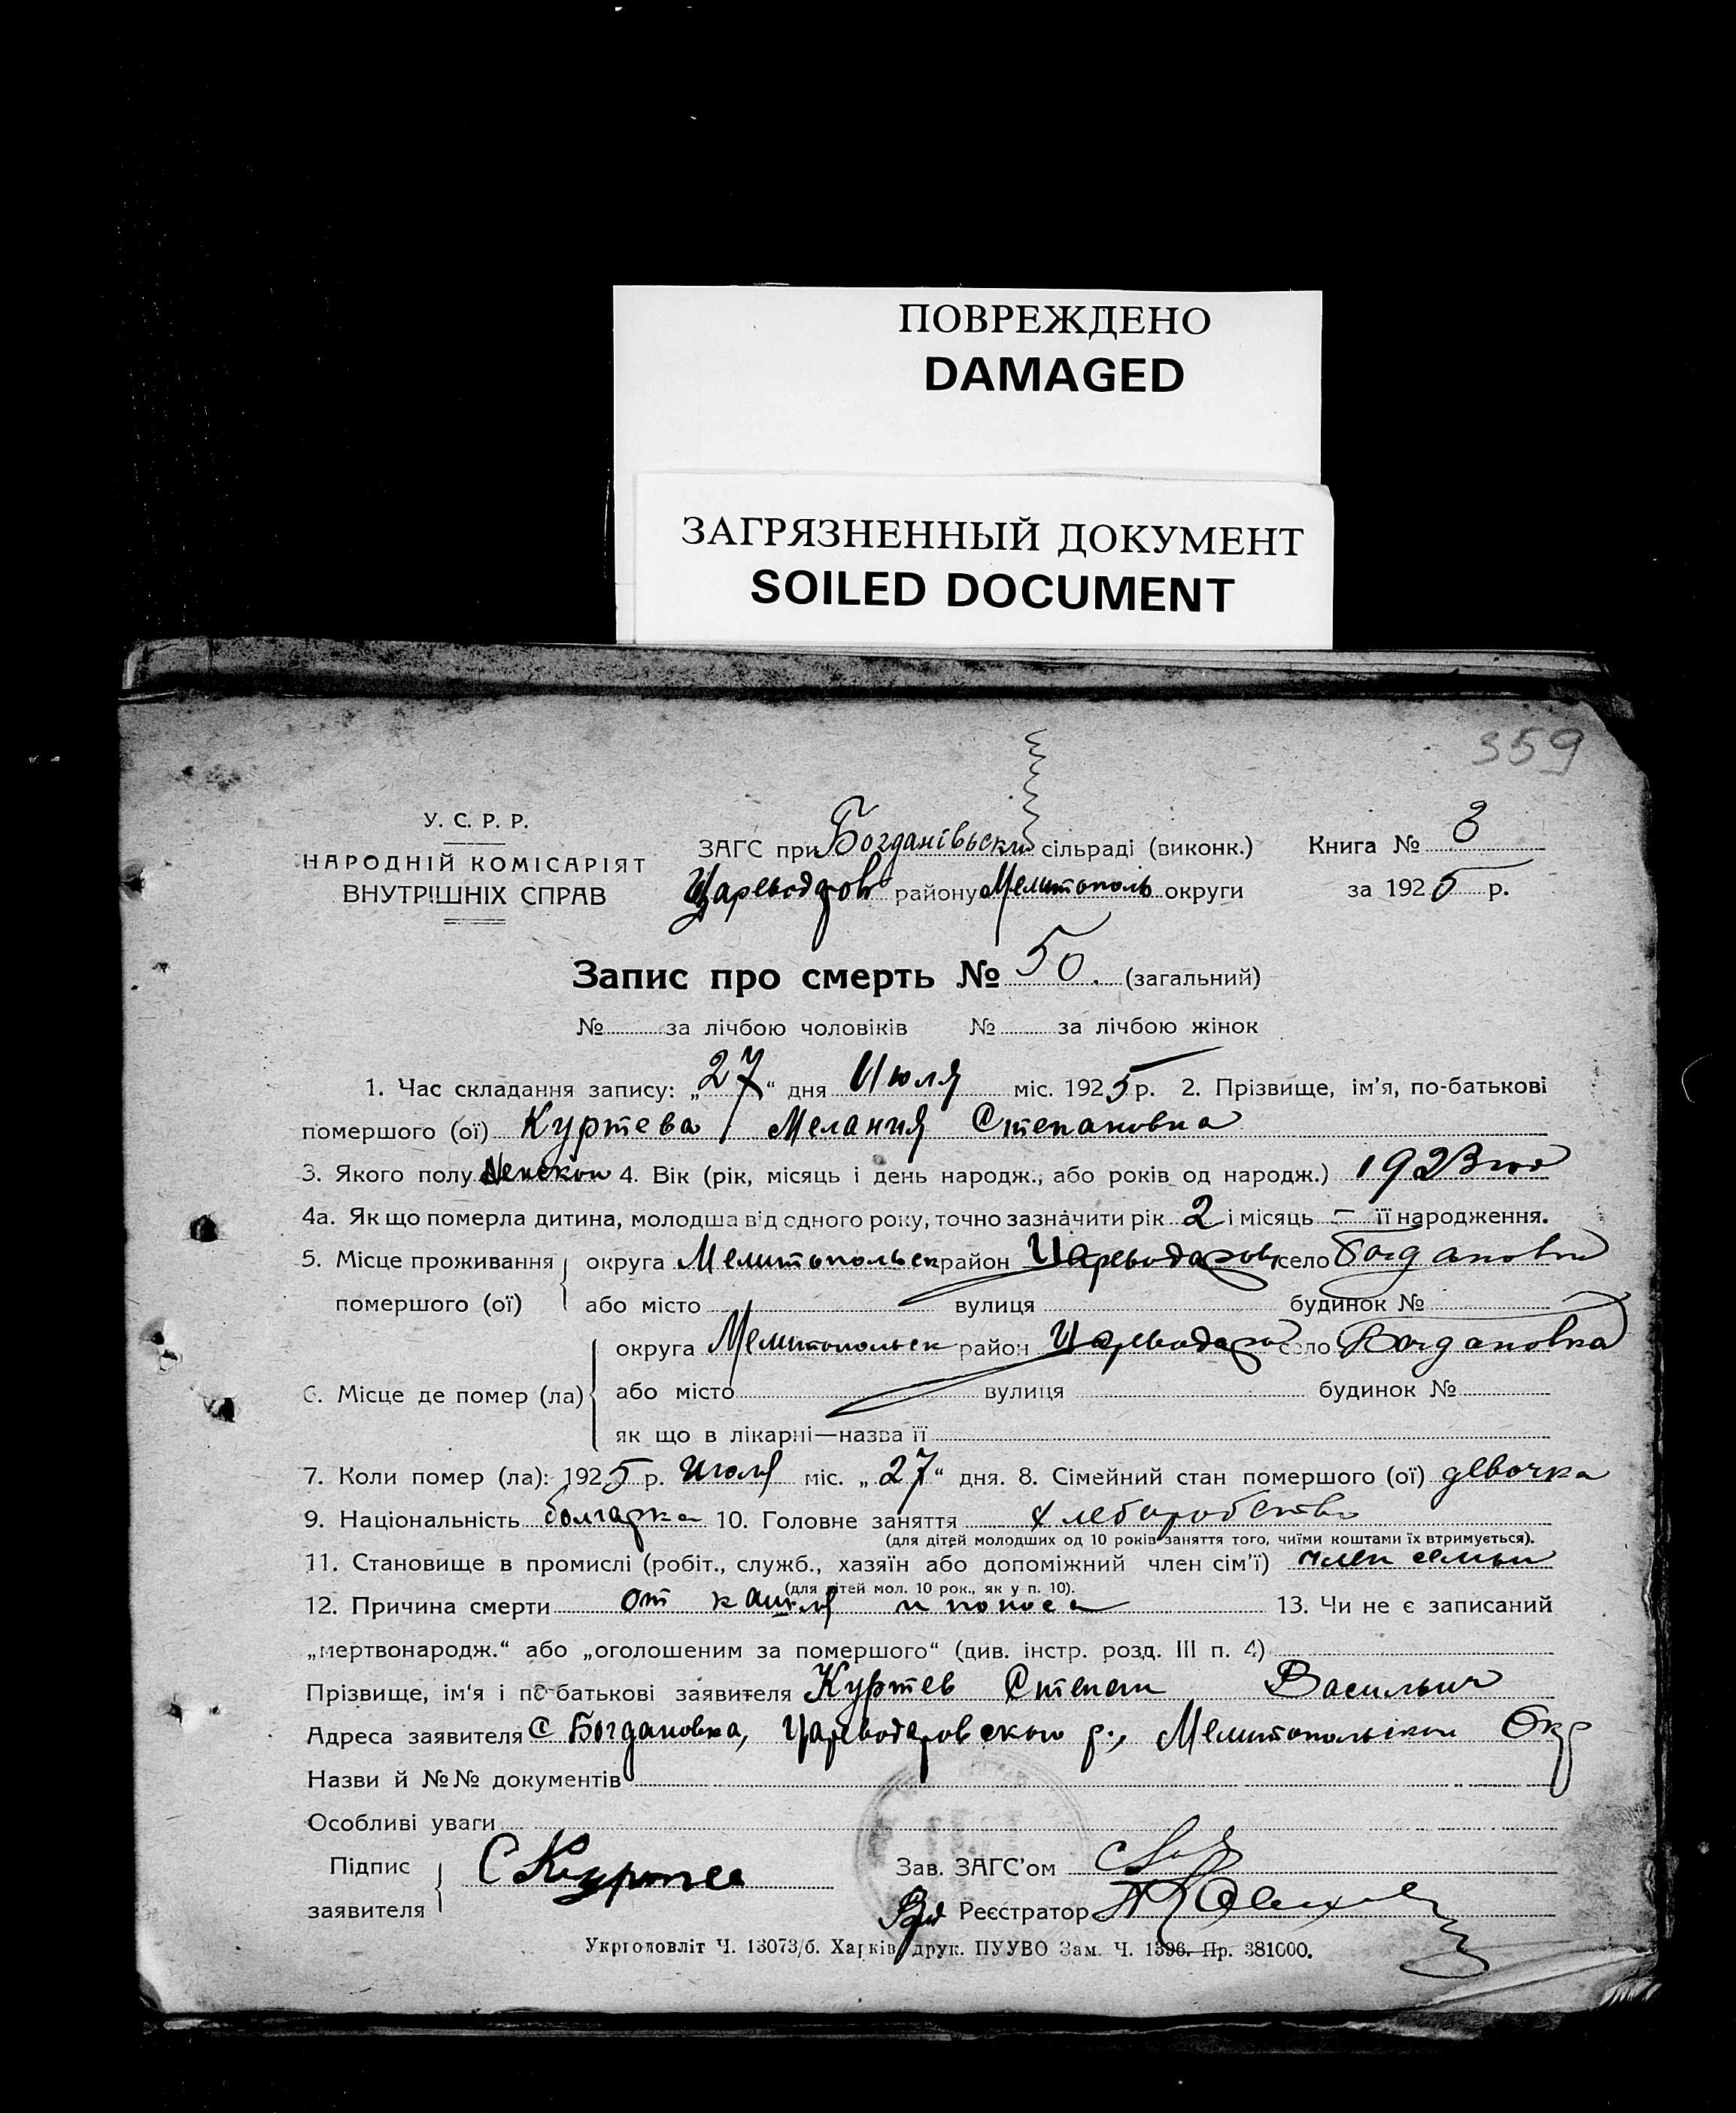 ПОВРЕЖДЕНО
DAMAGED
ЗАГРЯЗНЕННЫЙ ДОКУМЕНТ
SOILED DOCUMENT
359
У. С. Р. Р.
НАРОДНІЙ КОМІСАРІЯТ
ВНУТРІШНІХ СПРАВ
ЗАГС при Богданівьский сільраді (виконк.)
Царводаров району Мелитополь округи
Книга № 3
за 1925 р.
Запис про смерть № 50. (загальний)
№ за лічбою чоловіків № за лічбою жінок
1. Час складання запису: „27“ дня Июля міс. 1925 р. 2. Прізвище, ім’я, по-батькові
помершого (ої) Куртева Мелания Степановна
3. Якого полу женской 4. Вік (рік, місяць і день народж., або років од народж.) 1923 год
4а. Як що померла дитина, молодша від одного року, точно зазначити рік 2 і місяць — її народження.
5. Місце проживання округа Мелитопольск район Царьводаров село Богдановка
помершого (ої) або місто вулиця будинок №
округа Мелитопольск район Царьводаро село Богдановка
6. Місце де помер (ла) або місто вулиця будинок №
як що в лікарні—назва її
7. Коли помер (ла): 1925 р. Июля міс. „27“ дня. 8. Сімейний стан помершого (ої) девочка
9. Національність болгарка 10. Головне заняття хлеборобство
(для дітей молодших од 10 років заняття того, чиїми коштами їх втримується).
11. Становище в промислі (робіт., служб., хазяїн або допоміжний член сім’ї) член семьи
(для дітей мол. 10 рок., як у п. 10).
12. Причина смерти от кашля и поноса 13. Чи не є записаний
„мертвонародж.“ або „оголошеним за помершого“ (див. інстр. розд. III п. 4)
Прізвище, ім‘я і по-батькові заявителя Куртев Степан Васильич
Адреса заявителя С Богдановка, Царводаровского р., Мелитопольской Окр
Назви й №№ документів
Особливі уваги
Підпис
заявителя
С Куртев
Зав. ЗАГС’ом
Реєстратор
Укрголовліт Ч. 13073/б. Харків, друк. ПУУВО Зам. Ч. 1396. Пр. 381000.